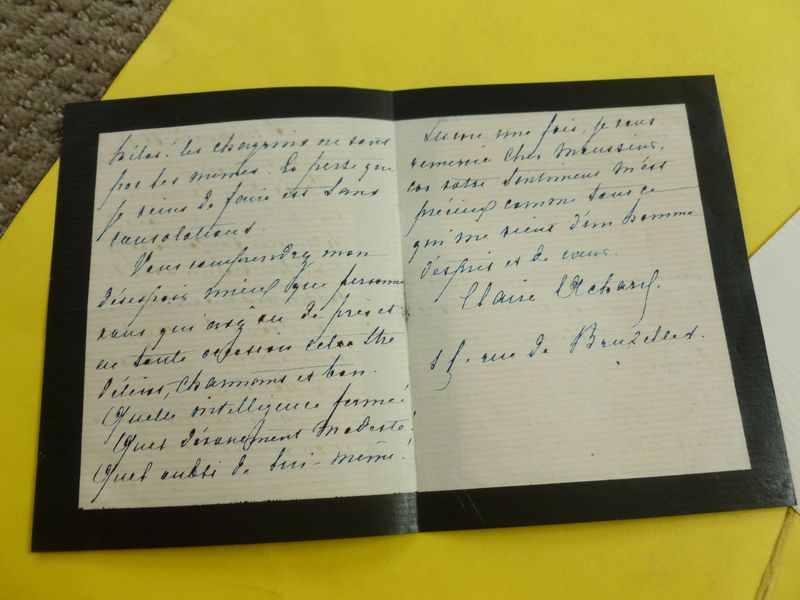 hélas! les chagrins ne sont
pas les mêmes. La perte que
je viens de faire est sans
consolations.
Vous comprendrez mon
désespoir mieux que personne
vous qui avez vu de près et
en toute occasion cet être
délicat, charmant et bon.
Quelle intelligence fermée!
Quel dévouement modeste!
Quel oubli de lui-même!
Encore une fois, je vous
remercie cher Monsieur,
car votre sentiment m'est
précieux comme tout ce
qui me vient d'un homme
d'esprit et de cœur.
Claire Achard.
rue de Bruxelles.